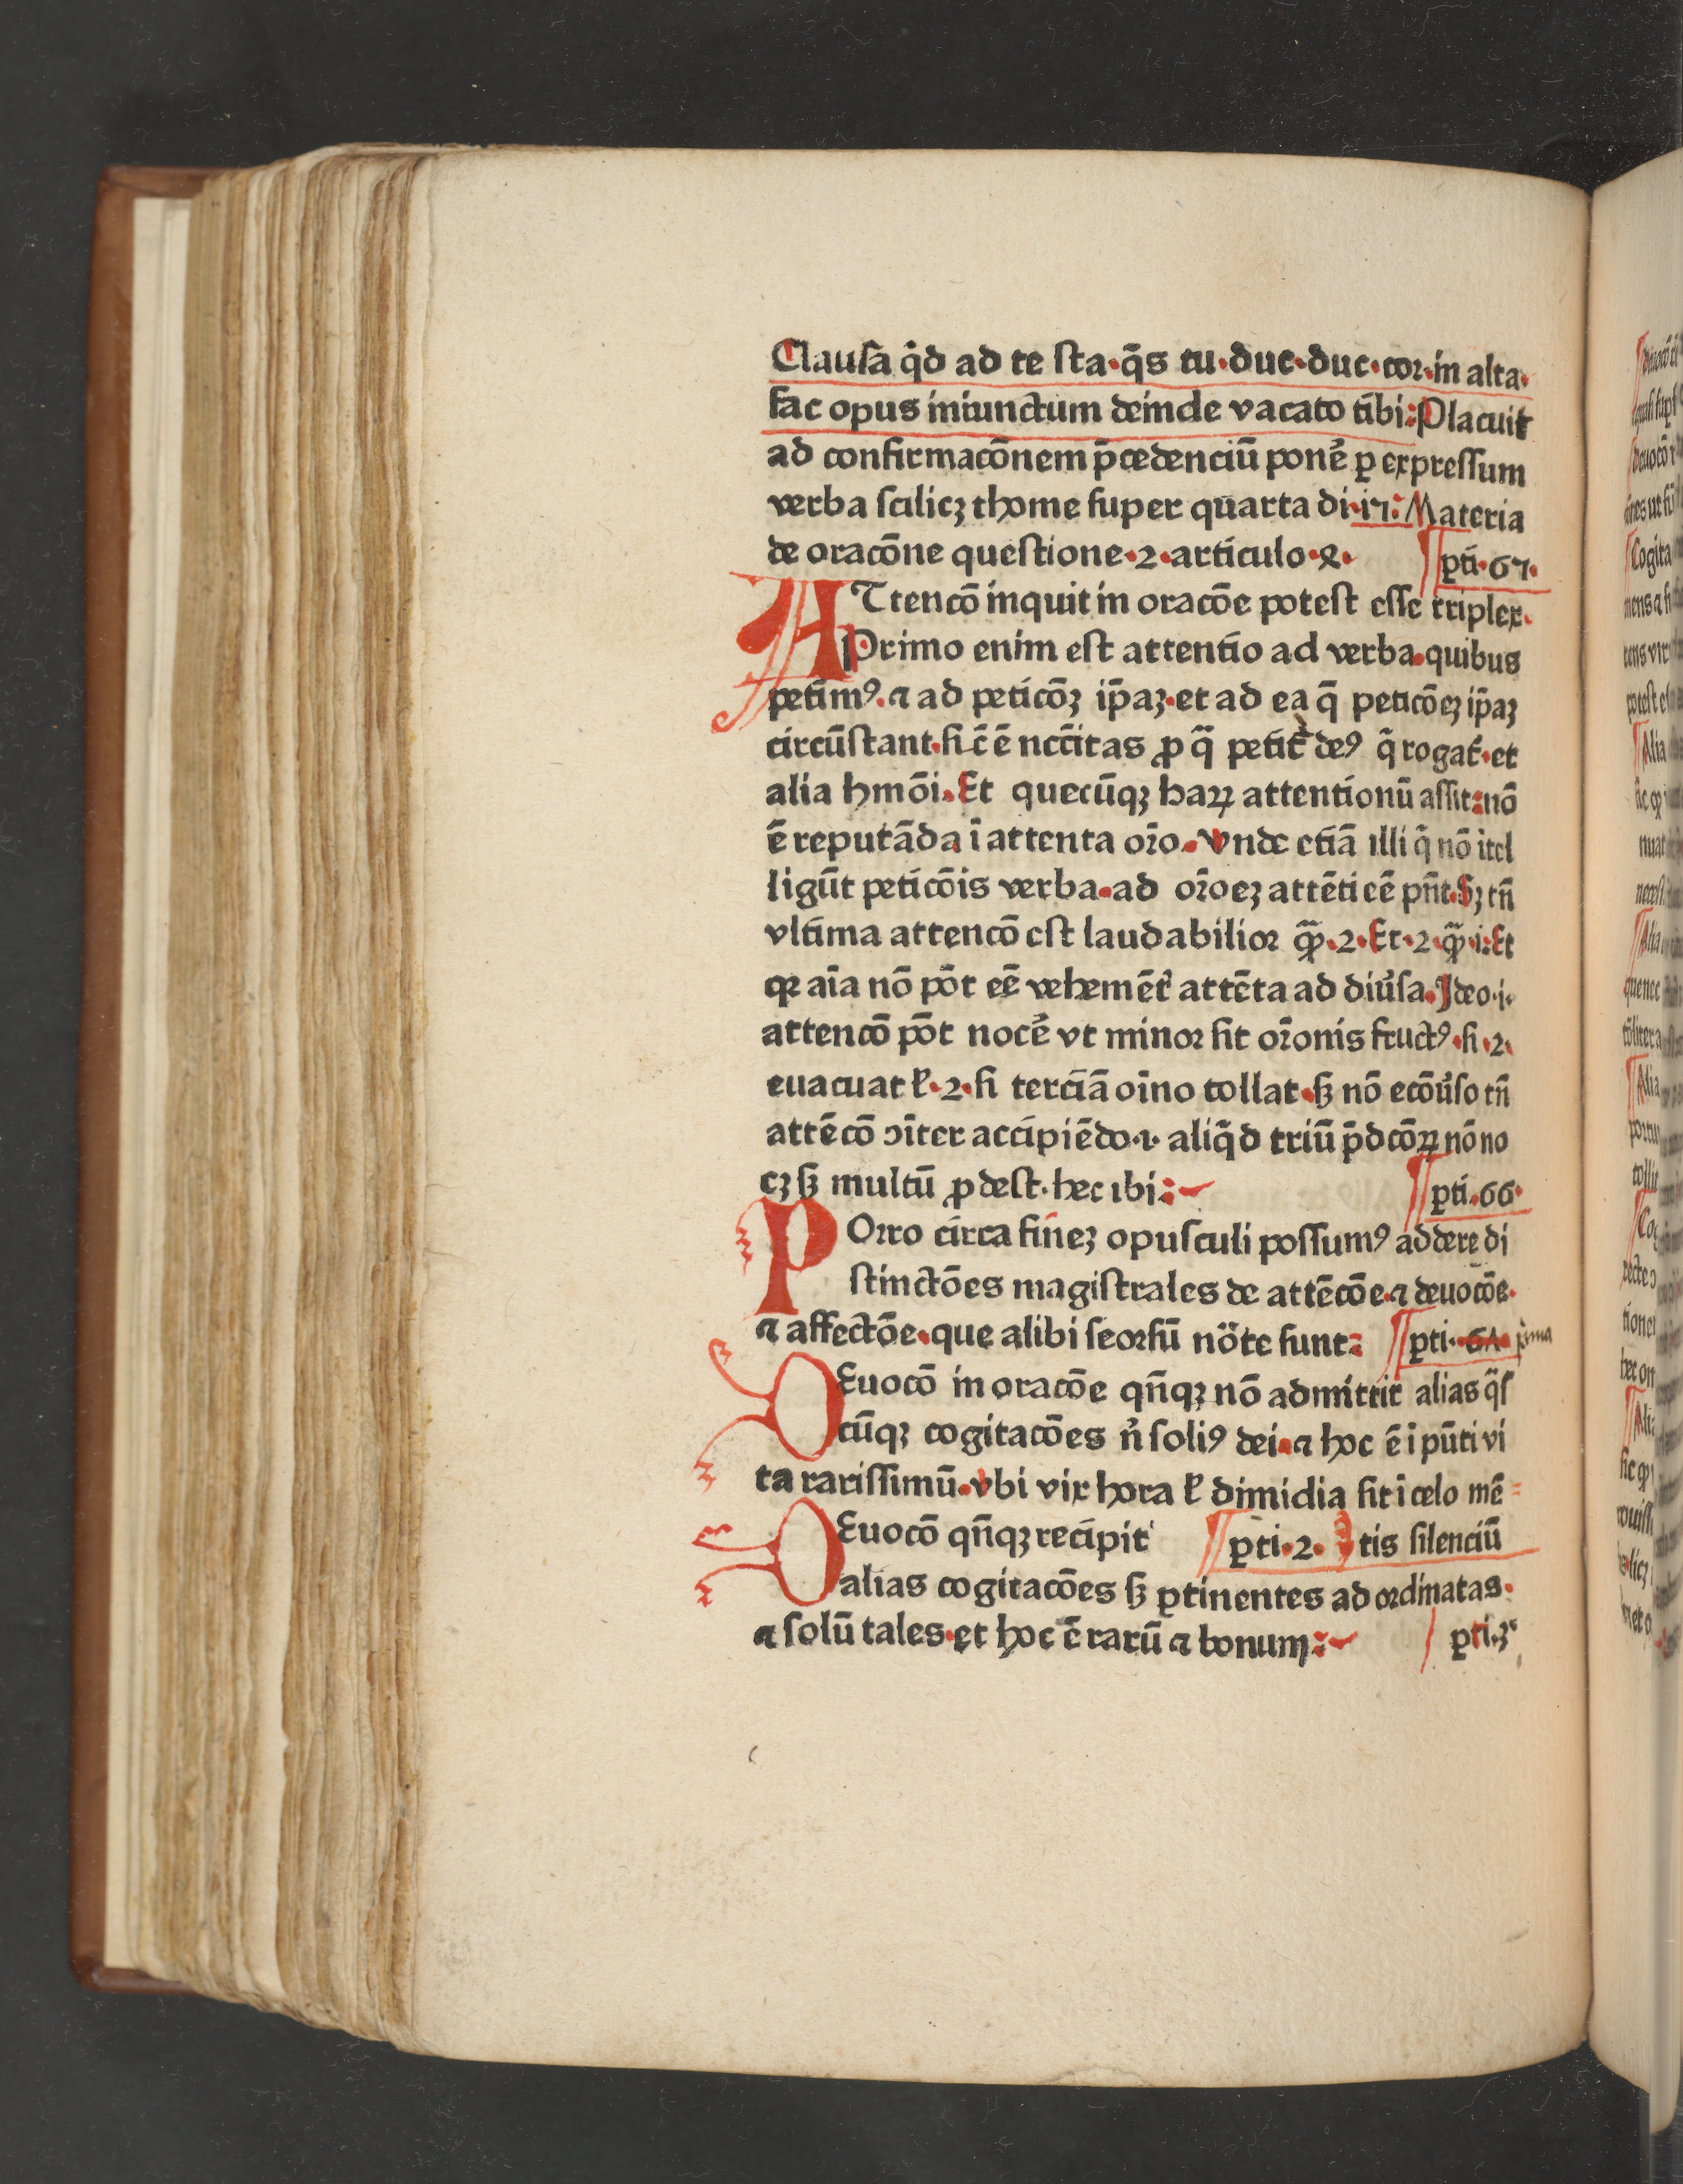 Clausa q̊d ad te sta·q̄s tu·duc·duc·cor·in alta·
fac opus iniunctum deinde vacato tibi: Placuit
ad confirmacōnem p̄cedenciū ponē ꝑ expressum
verba scilicꝫ thome super quarta di·17: Materia
de oracōne questione·2·articulo·ꝝ· ¶ ꝑti·67·
ATtencō inquit in oracōe potest esse triplex·
Primo enim est attentio ad verba·quibus
petimꝰ·⁊ ad peticōꝫ ip̄aꝫ·et ad ea q̄ peticōeꝫ ip̄aꝫ
circūstant·si c̄ ē ncc̄itas ꝓ q̄ petit̄ deꝰ q̄ rogat̄·et
alia hmōi·Et quecūqꝫ haꝝ attentionū assit:nō
ē reputāda ī attenta or̄o·Vnde etiā illi q̄ nō ītel
ligūt peticōis verba·ad or̄oeꝫ attēti eē pn̄t·Sꝫ tn̄
vltima attencō est laudabilior ꝙ̄·2·Et·2·ꝙ̄·i:Et
qꝛ aīa nō pōt eē vehemēt̄ attēta ad diu̓sa·Ideo·i·
attencō pōt nocē vt minor sit or̄onis fructꝰ·si·2·
euacuat ł·2·si terciā oīno tollat·ꞩ nō ecōu̓so tn̄
attēcō ↄīter accipiēdo·1·aliq̄d triū p̄dcōꝝ nō no
cꝫ ꞩ multū ꝓdest·hec ibi: ¶ ꝑti·66·
POrro circa fineꝫ opusculi possumꝰ addere di
stinctōes magistrales de attēcōe·⁊ deuocōe·
⁊ affectōe·que alibi seorsū nōte sunt: ¶ ꝑti· 61 p̄ma
DEuocō in oracōe qn̄qꝫ nō admittit alias q̄s
cūqꝫ cogitacōes n̓ soliꝰ dei·⁊ hoc ē ī pn̄ti vi
ta rarissimū·vbi vix hora ł dimidia sit ī celo mē=
DEuocō qn̄qꝫ recipit ¶ ꝑti·2· tis silenciū
alias cogitacōes ꞩ ꝑtinentes ad ordinatas·
⁊ solū tales·et hoc ē rarū ⁊ bonum: ꝑti·3